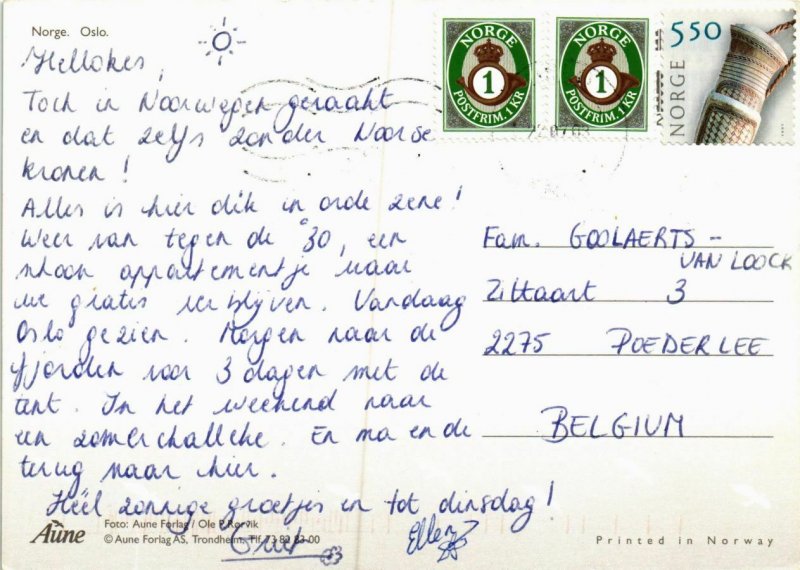 Norge. Oslo.
Hellokes,
Toch in Noorwegen geraakt
en dat zelfs zonder Noorse
kronen!
Alles is hier dik in orde zene!
Weer van tegen de °30, een
schoon appartementje waar
we gratis verblijven. Vandaag
Oslo gezien. Morgen naar de
fjorden voor 3 dagen met de
tent. In het weekend naar
een zomerchalleke. En ma en de
terug naar hier.
Héél zonnige groetjes en tot dinsdag!
Ellen
Aune
Foto: Aune Forlag / Ole P. Rørvik
© Aune Forlag AS, Trondheim. Tlf. 73 82 83 00
NORGE
1
POSTFRIM. 1 KR
NORGE
1
POSTFRIM. 1 KR
550
NORGE
Fam. GOOLAERTS -
VAN LOOCK
Zittaart 3
2275 POEDERLEE
BELGIUM
Printed in Norway